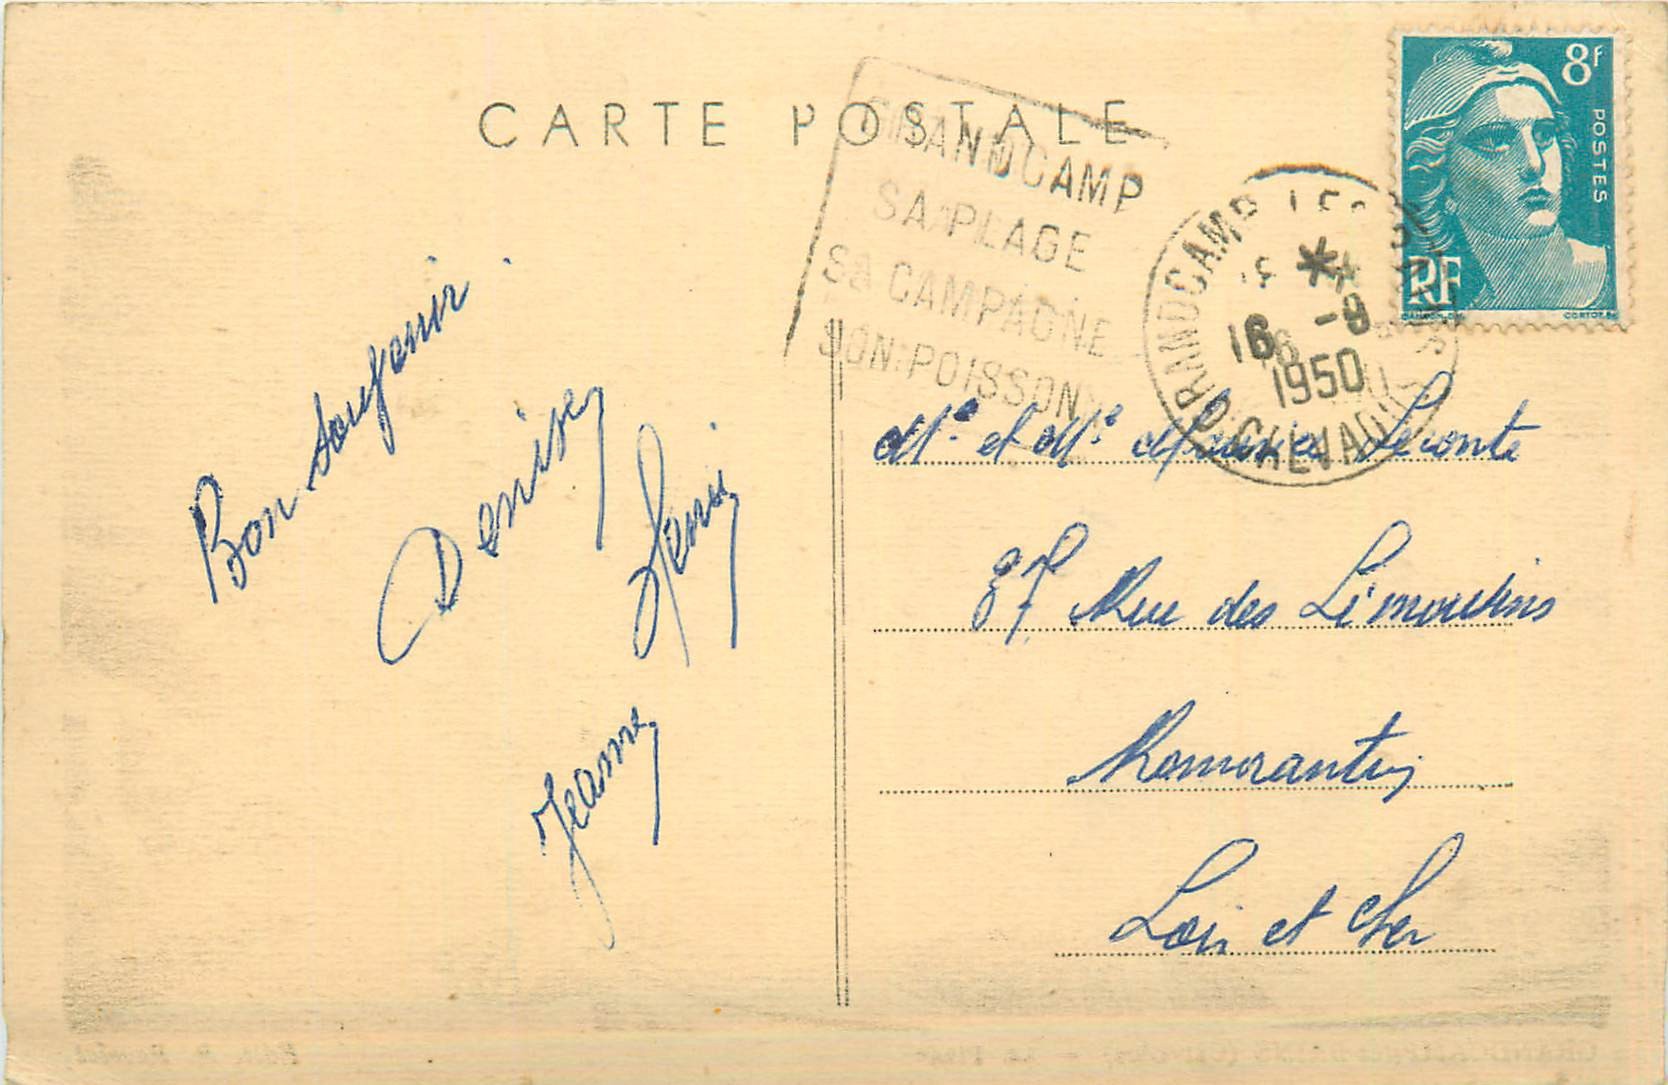 CARTE POSTALE
GRANDCAMP
SA PLAGE
SA CAMPAGNE
SON POISSON
GRANDCAMP LES BAINS
16 -9
1950
CALVADOS
8F
POSTES
RF
GANDON
CORTOT
Bon souvenir
Denise
Henri
Jeanne
Mr et Me Maurice Leconte
37 Rue des Limousins
Romorantin
Loir et Cher